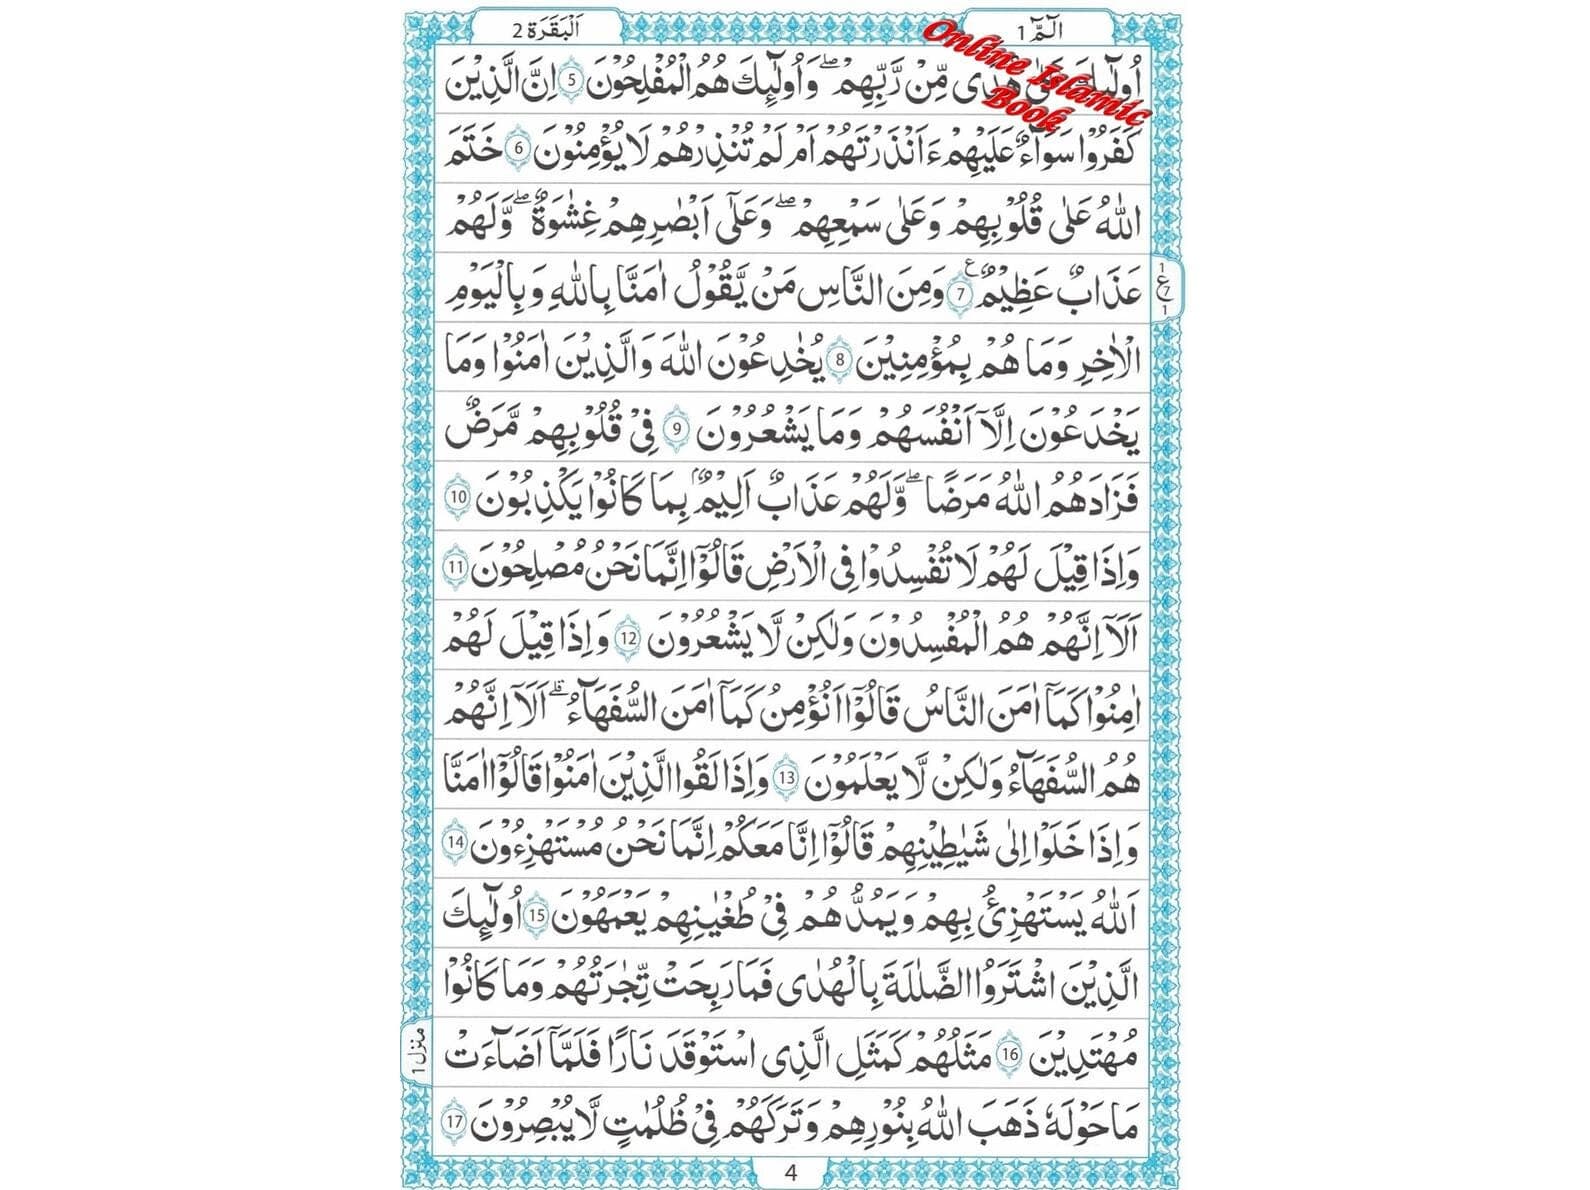 الٓمّٓ 1
اَلْبَقَرَة 2
Online Islamic
Book
اُولٰٓئِكَ عَلٰى هُدًى مِّنْ رَّبِّهِمْ ۖ وَاُولٰٓئِكَ هُمُ الْمُفْلِحُوْنَ 5 اِنَّ الَّذِيْنَ
كَفَرُوْا سَوَآءٌ عَلَيْهِمْ ءَاَنْذَرْتَهُمْ اَمْ لَمْ تُنْذِرْهُمْ لَا يُؤْمِنُوْنَ 6 خَتَمَ
اللّٰهُ عَلٰى قُلُوْبِهِمْ وَعَلٰى سَمْعِهِمْ ۖ وَعَلٰٓى اَبْصٰرِهِمْ غِشٰوَةٌ ۖ وَّلَهُمْ
عَذَابٌ عَظِيْمٌ 7 ع وَمِنَ النَّاسِ مَنْ يَّقُوْلُ اٰمَنَّا بِاللّٰهِ وَبِالْيَوْمِ
1
ع
7
1
الْاٰخِرِ وَمَا هُمْ بِمُؤْمِنِيْنَ 8 يُخٰدِعُوْنَ اللّٰهَ وَالَّذِيْنَ اٰمَنُوْا وَمَا
يَخْدَعُوْنَ اِلَّآ اَنْفُسَهُمْ وَمَا يَشْعُرُوْنَ 9 فِيْ قُلُوْبِهِمْ مَّرَضٌ
فَزَادَهُمُ اللّٰهُ مَرَضًا ۖ وَّلَهُمْ عَذَابٌ اَلِيْمٌۢ بِمَا كَانُوْا يَكْذِبُوْنَ 10
وَاِذَا قِيْلَ لَهُمْ لَا تُفْسِدُوْا فِى الْاَرْضِ قَالُوْٓا اِنَّمَا نَحْنُ مُصْلِحُوْنَ 11
اَلَآ اِنَّهُمْ هُمُ الْمُفْسِدُوْنَ وَلٰكِنْ لَّا يَشْعُرُوْنَ 12 وَاِذَا قِيْلَ لَهُمْ
اٰمِنُوْا كَمَآ اٰمَنَ النَّاسُ قَالُوْٓا اَنُؤْمِنُ كَمَآ اٰمَنَ السُّفَهَآءُ ۗ اَلَآ اِنَّهُمْ
هُمُ السُّفَهَآءُ وَلٰكِنْ لَّا يَعْلَمُوْنَ 13 وَاِذَا لَقُوا الَّذِيْنَ اٰمَنُوْا قَالُوْٓا اٰمَنَّا
وَاِذَا خَلَوْا اِلٰى شَيٰطِيْنِهِمْ قَالُوْٓا اِنَّا مَعَكُمْ اِنَّمَا نَحْنُ مُسْتَهْزِءُوْنَ 14
اَللّٰهُ يَسْتَهْزِئُ بِهِمْ وَيَمُدُّهُمْ فِيْ طُغْيٰنِهِمْ يَعْمَهُوْنَ 15 اُولٰٓئِكَ
الَّذِيْنَ اشْتَرَوُا الضَّلٰلَةَ بِالْهُدٰى فَمَا رَبِحَتْ تِّجٰرَتُهُمْ وَمَا كَانُوْا
مُهْتَدِيْنَ 16 مَثَلُهُمْ كَمَثَلِ الَّذِى اسْتَوْقَدَ نَارًا فَلَمَّآ اَضَآءَتْ
منزل 1
مَا حَوْلَهٗ ذَهَبَ اللّٰهُ بِنُوْرِهِمْ وَتَرَكَهُمْ فِيْ ظُلُمٰتٍ لَّا يُبْصِرُوْنَ 17
4